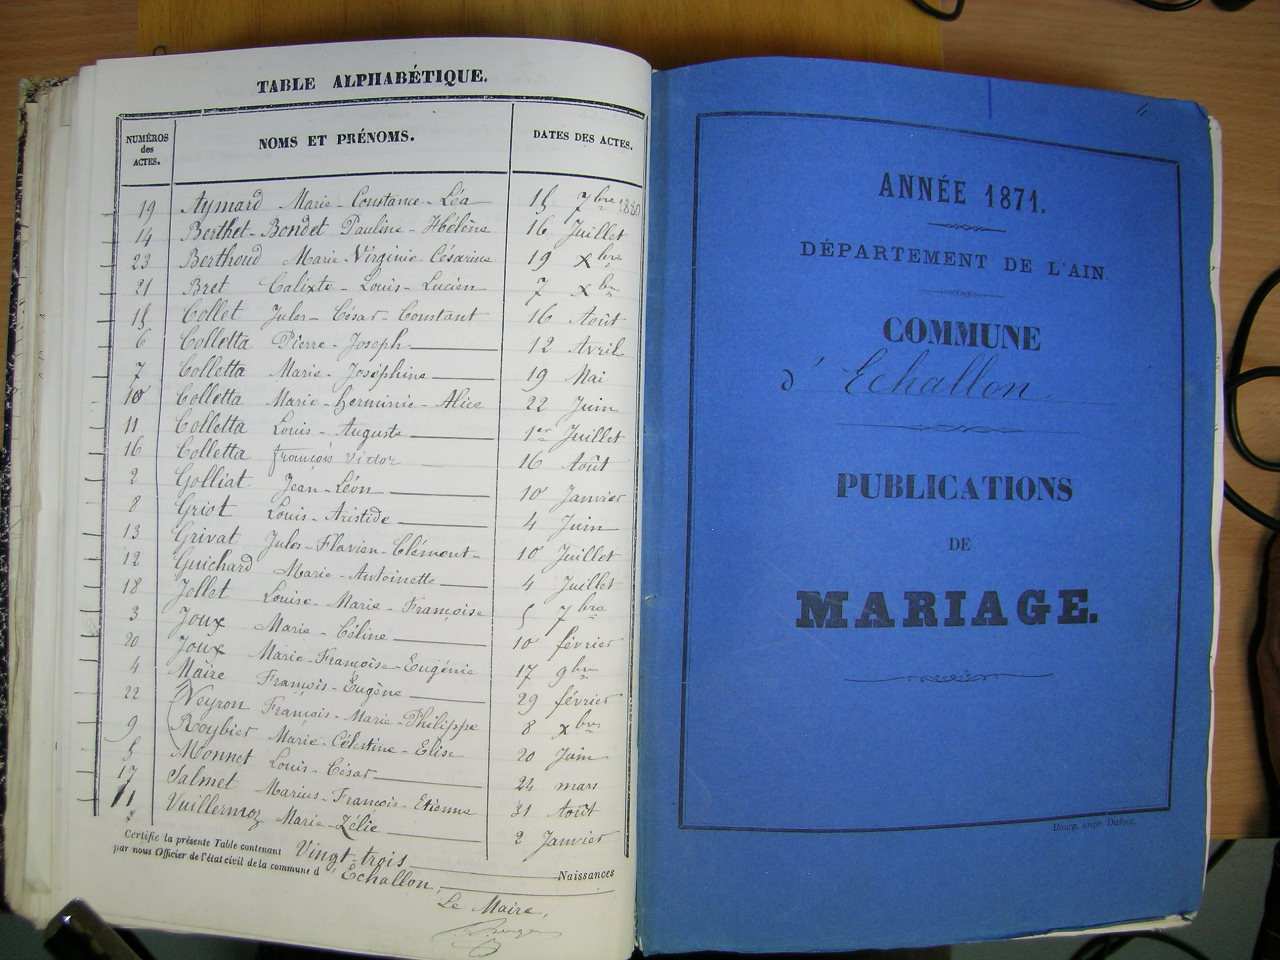 TABLE ALPHABÉTIQUE.
NUMÉROS des ACTES. NOMS ET PRÉNOMS. DATES DES ACTES.
19 Aymard Marie-Constance-Léa 15 7bre 1880
14 Berthet-Bondet Pauline-Hbélène 16 Juillet
23 Berthoud Marie-Virginie-Césarine 19 xbre
21 Bret Calixte-Louis-Lucien 7 xbre
15 Collet Jules-César-Constant 16 Août
6 Colletta Pierre-Joseph 12 Avril
7 Colletta Marie-Joséphine 19 Mai
10 Colletta Marie-herminie-Alice 22 Juin
11 Colletta Louis-Auguste 1er Juillet
16 Colletta françois victor 16 Août
2 Golliat Jean-Léon 10 Janvier
8 Griot Louis-Aristide 4 Juin
13 Grivat Jules-Flavien-Clément 10 Juillet
12 Guichard Marie-Antoinette 4 Juillet
18 Jellet Louise-Marie-Françoise 5 7bre
3 Joux Marie-Céline 10 février
20 Joux Marie-Françoise-Eugénie 17 9bre
4 Maire François-Eugène 29 février
22 Neyron François-Marie-Philippe 8 xbre
9 Roybier Marie-Célestine-Elise 20 Juin
5 Monnet Louis-César 24 mars
17 Salmet Marius-François-Etienne 31 Août
1 Vuillermoz Marie-Zélie 2 Janvier
Certifie la présente Table contenant Vingt-trois Naissances
par nous Officier de l'état civil de la commune d'Echallon,
Le Maire,
ANNÉE 1871.
DÉPARTEMENT DE L'AIN
COMMUNE
d'Echallon
PUBLICATIONS
DE
MARIAGE.
Bourg, impr. Dufour.